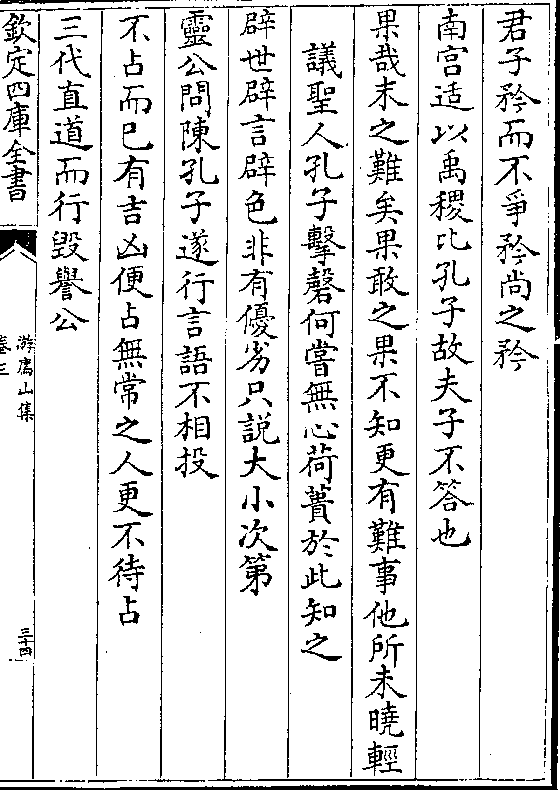 君子矜而不爭矜尚之矜
南宫适以禹稷比孔子故夫子不答也
果哉末之難矣果敢之果不知更有難事他所未曉輕
議聖人孔子擊磬何嘗無心荷蕢於此知之
辟世辟言辟色非有優劣只説大小次第
靈公問陳孔子遂行言語不相投
不占而已有吉凶便占無常之人更不待占
三代直道而行毀譽公
欽定四庫全書
游廌山集
卷三
三十四